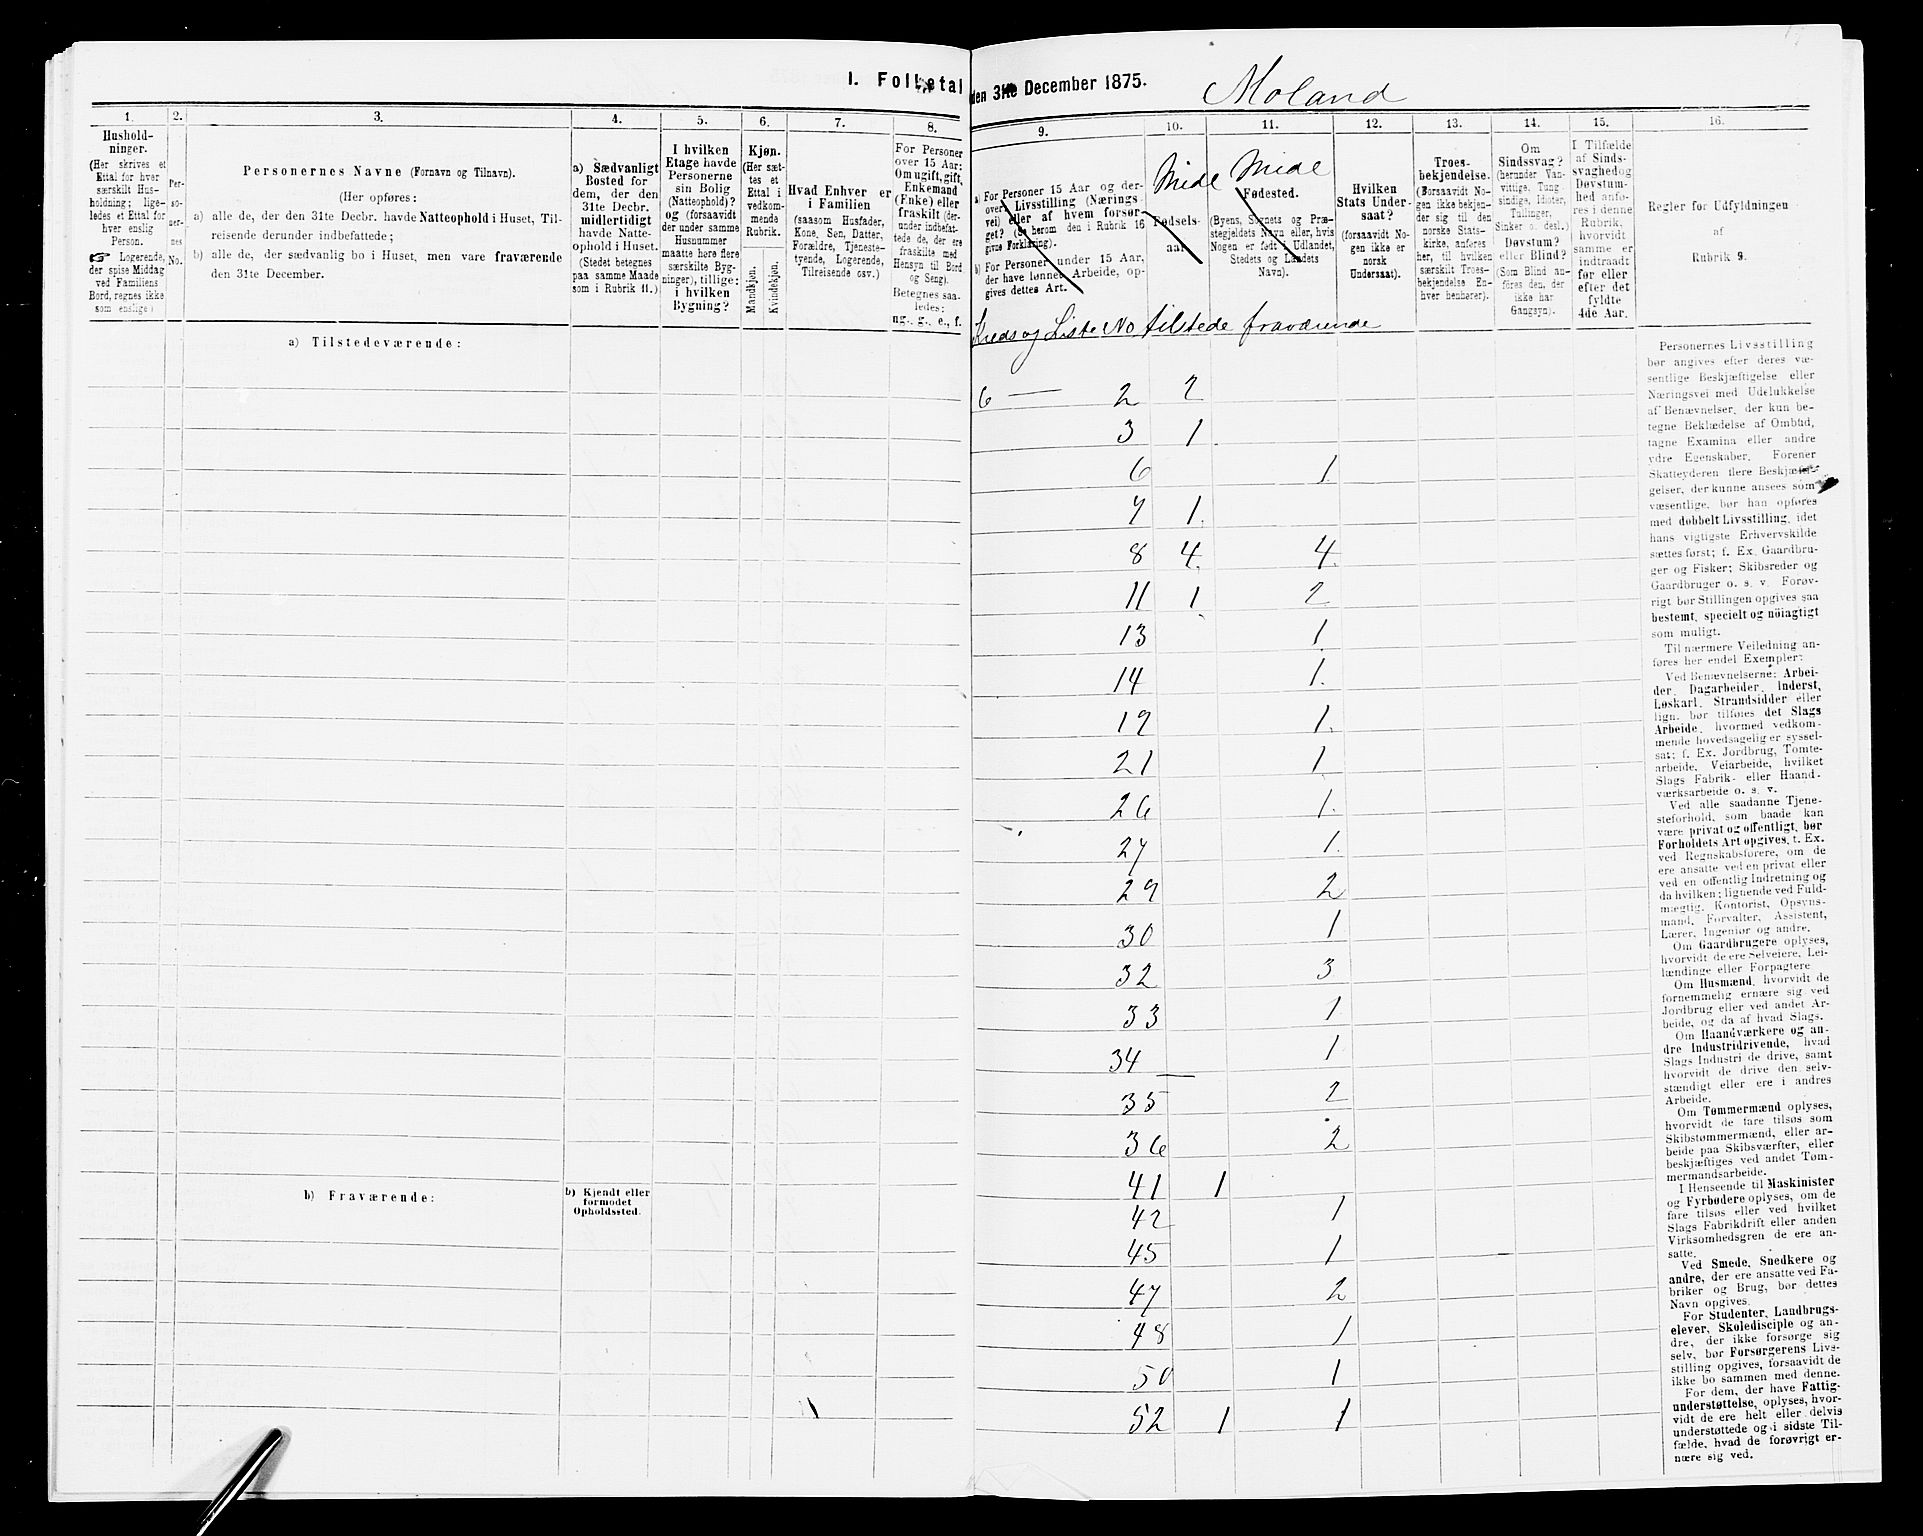 I. Folketal
den 31te December 1875.
Moland
1.
2.
3.
4.
5.
6.
7.
8.
Hushold-
ninger.
(Her skrives et
Ettal for hver
særskilt Hus-
holdning; lige-
ledes et Ettal for
hver enslig
Person.
☞ Logerende,
der spise Middag
ved Familiens
Bord, regnes ikke
som enslige)
Per-
so-
ner-
nes
No.
Personernes Navne (Fornavn og Tilnavn).
(Her opføres:
a) alle de, der den 31te Decbr. havde Natteophold i Huset, Til-
reisende derunder indbefattede;
b) alle de, der sædvanlig bo i Huset, men vare fraværende
den 31te December.
a) Sædvanligt
Bosted for
dem, der den
31te Decbr.
midlertidigt
havde Natte-
ophold i Huset.
(Stedet betegnes
paa samme Maade
som i Rubrik 11.)
I hvilken
Etage havde
Personerne
sin Bolig
(Natteophold)?
og (forsaavidt
der under samme
Husnummer
maatte høre flere
særskilte Byg-
ninger), tillige:
i hvilken
Bygning?
Kjøn.
(Her sæt-
tes et
Ettal i
vedkom-
mende
Rubrik.
Mandkjøn.
Kvindekjøn.
Hvad Enhver er
i Familien
(saasom Husfader,
Kone, Søn, Datter,
Forældre, Tjeneste-
tyende, Logerende,
Tilreisende osv.)
For Personer
over 15 Aar:
Om ugift, gift,
Enkemand
(Enke) eller
fraskilt (der-
under indbefat-
tede de, der ere
fraskilte med
Hensyn til Bord
og Seng).
Betegnes saa-
ledes:
ug., g., e., f.
a) Tilstedeværende:
b) Fraværende:
b) Kjendt eller
formodet
Opholdssted.
9.
10.
11.
12.
13.
14.
15.
16.
a) For Personer 15 Aar og der-
over: Livsstilling (Nærings-
vei) eller af hvem forsør-
get? (Se herom den i Rubrik 16
givne Forklaring).
b) For Personer under 15 Aar,
der have lønnet Arbeide, op-
gives dettes Art.
Fødsels-
aar.
Fødested.
(Byens, Sognets og Præ-
stegjeldets Navn eller, hvis
Nogen er født i Udlandet,
Stedets og Landets
Navn).
Hvilken
Stats Under-
saat?
(forsaavidt No-
gen ikke er
norsk
Undersaat).
Troes-
bekjendelse.
(Forsaavidt No-
gen ikke bekjen-
der sig til den
norske Stats-
kirke, anføres
her, til hvilken
særskilt Troes-
bekjendelse En-
hver henhører).
Om
Sindssvag?
(herunder Van-
vittige, Tung-
sindige, Idioter,
Tullinger,
Sinker o. desl.)
Døvstum?
eller Blind?
(Som Blind an-
føres den, der
ikke har
Gangsyn).
I Tilfælde
af Sinds-
svaghed og
Døvstum-
hed anfø-
res i denne
Rubrik,
hvorvidt
samme er
indtraadt
før eller
efter det
fyldte
4de Aar.
Regler for Udfyldningen
af
Rubrik 9.
Kreds og Liste No tilstede fraværende
6 — 2 2
3 1
6 1
7 1
8 4 4
11 1 2
13 1
14 1
19 1
21 1
26 1
27 1
29 2
30 1
32 3
33 1
34 1
35 2
36 2
41 1
42 1
45 1
47 2
48 1
50 1
52 1 1
Personernes Livsstilling
bør angives efter deres væ-
sentlige Beskjæftigelse eller
Næringsvei med Udelukkelse
af Benævnelser, der kun be-
tegne Beklædelse af Ombud,
tagne Examina eller andre
ydre Egenskaber. Forener
Skatteyderen flere Beskjæfti-
gelser, der kunne ansees som
væsentlige, bør han opføres
med dobbelt Livsstilling, idet
hans vigtigste Erhvervskilde
sættes først; f. Ex. Gaardbru-
ger og Fisker; Skibsreder og
Gaardbruger o. s. v. Forøv-
rigt bør Stillingen opgives saa
bestemt, specielt og nöiagtigt
som muligt.
Til nærmere Veiledning an-
føres her endel Exempler:
Ved Benævnelserne: Arbei-
der, Dagarbeider, Inderst,
Løskarl, Strandsidder eller
lign. bør tilføies det Slags
Arbeide, hvormed vedkom-
mende hovedsagelig er syssel-
sat; f. Ex. Jordbrug, Tomte-
arbeide, Veiarbeide, hvilket
Slags Fabrik- eller Haand-
værksarbeide o. s. v.
Ved alle saadanne Tjene-
steforhold, som baade kan
være privat og offentligt, bør
Forholdets Art opgives, t. Ex.
ved Regnskabsførere, om de
ere ansatte ved en privat eller
ved en offentlig Indretning og
da hvilken; lignende ved Fuld-
mægtig, Kontorist, Opsyns-
mand, Forvalter, Assistent,
Lærer, Ingeniør og andre.
Om Gaardbrugere oplyses,
hvorvidt de ere Selveiere, Lei-
lændinge eller Forpagtere
Om Husmænd, hvorvidt de
fornemmelig ernære sig ved
Jordbrug eller ved andet Ar-
beide, og da af hvad Slags.
Om Haandværkere og an-
dre Industridrivende, hvad
Slags Industri de drive, samt
hvorvidt de drive den selv-
stændigt eller ere i andres
Arbeide.
Om Tømmermænd oplyses,
hvorvidt de fare tilsøs som
Skibstømmermænd, eller ar-
beide paa Skibsværfter, eller
beskjæftiges ved andet Tøm-
mermandsarbeide.
I Henseende til Maskinister
og Fyrbødere oplyses, om de
fare tilsøs eller ved hvilket
Slags Fabrikdrift eller anden
Virksomhedsgren de ere an-
satte.
Ved Smede, Snedkere og
andre, der ere ansatte ved Fa-
briker og Brug, bør dettes
Navn opgives.
For Studenter, Landbrugs-
elever, Skoledisciple og an-
dre, der ikke forsørge sig
selv, bør Forsørgerens Livs-
stilling opgives, forsaavidt de
ikke bo sammen med denne.
For dem, der have Fattig-
understøttelse, oplyses, hvor-
vidt de ere helt eller delvis
understøttede og i sidste Til-
fælde, hvad de forøvrigt er-
nære sig ved.